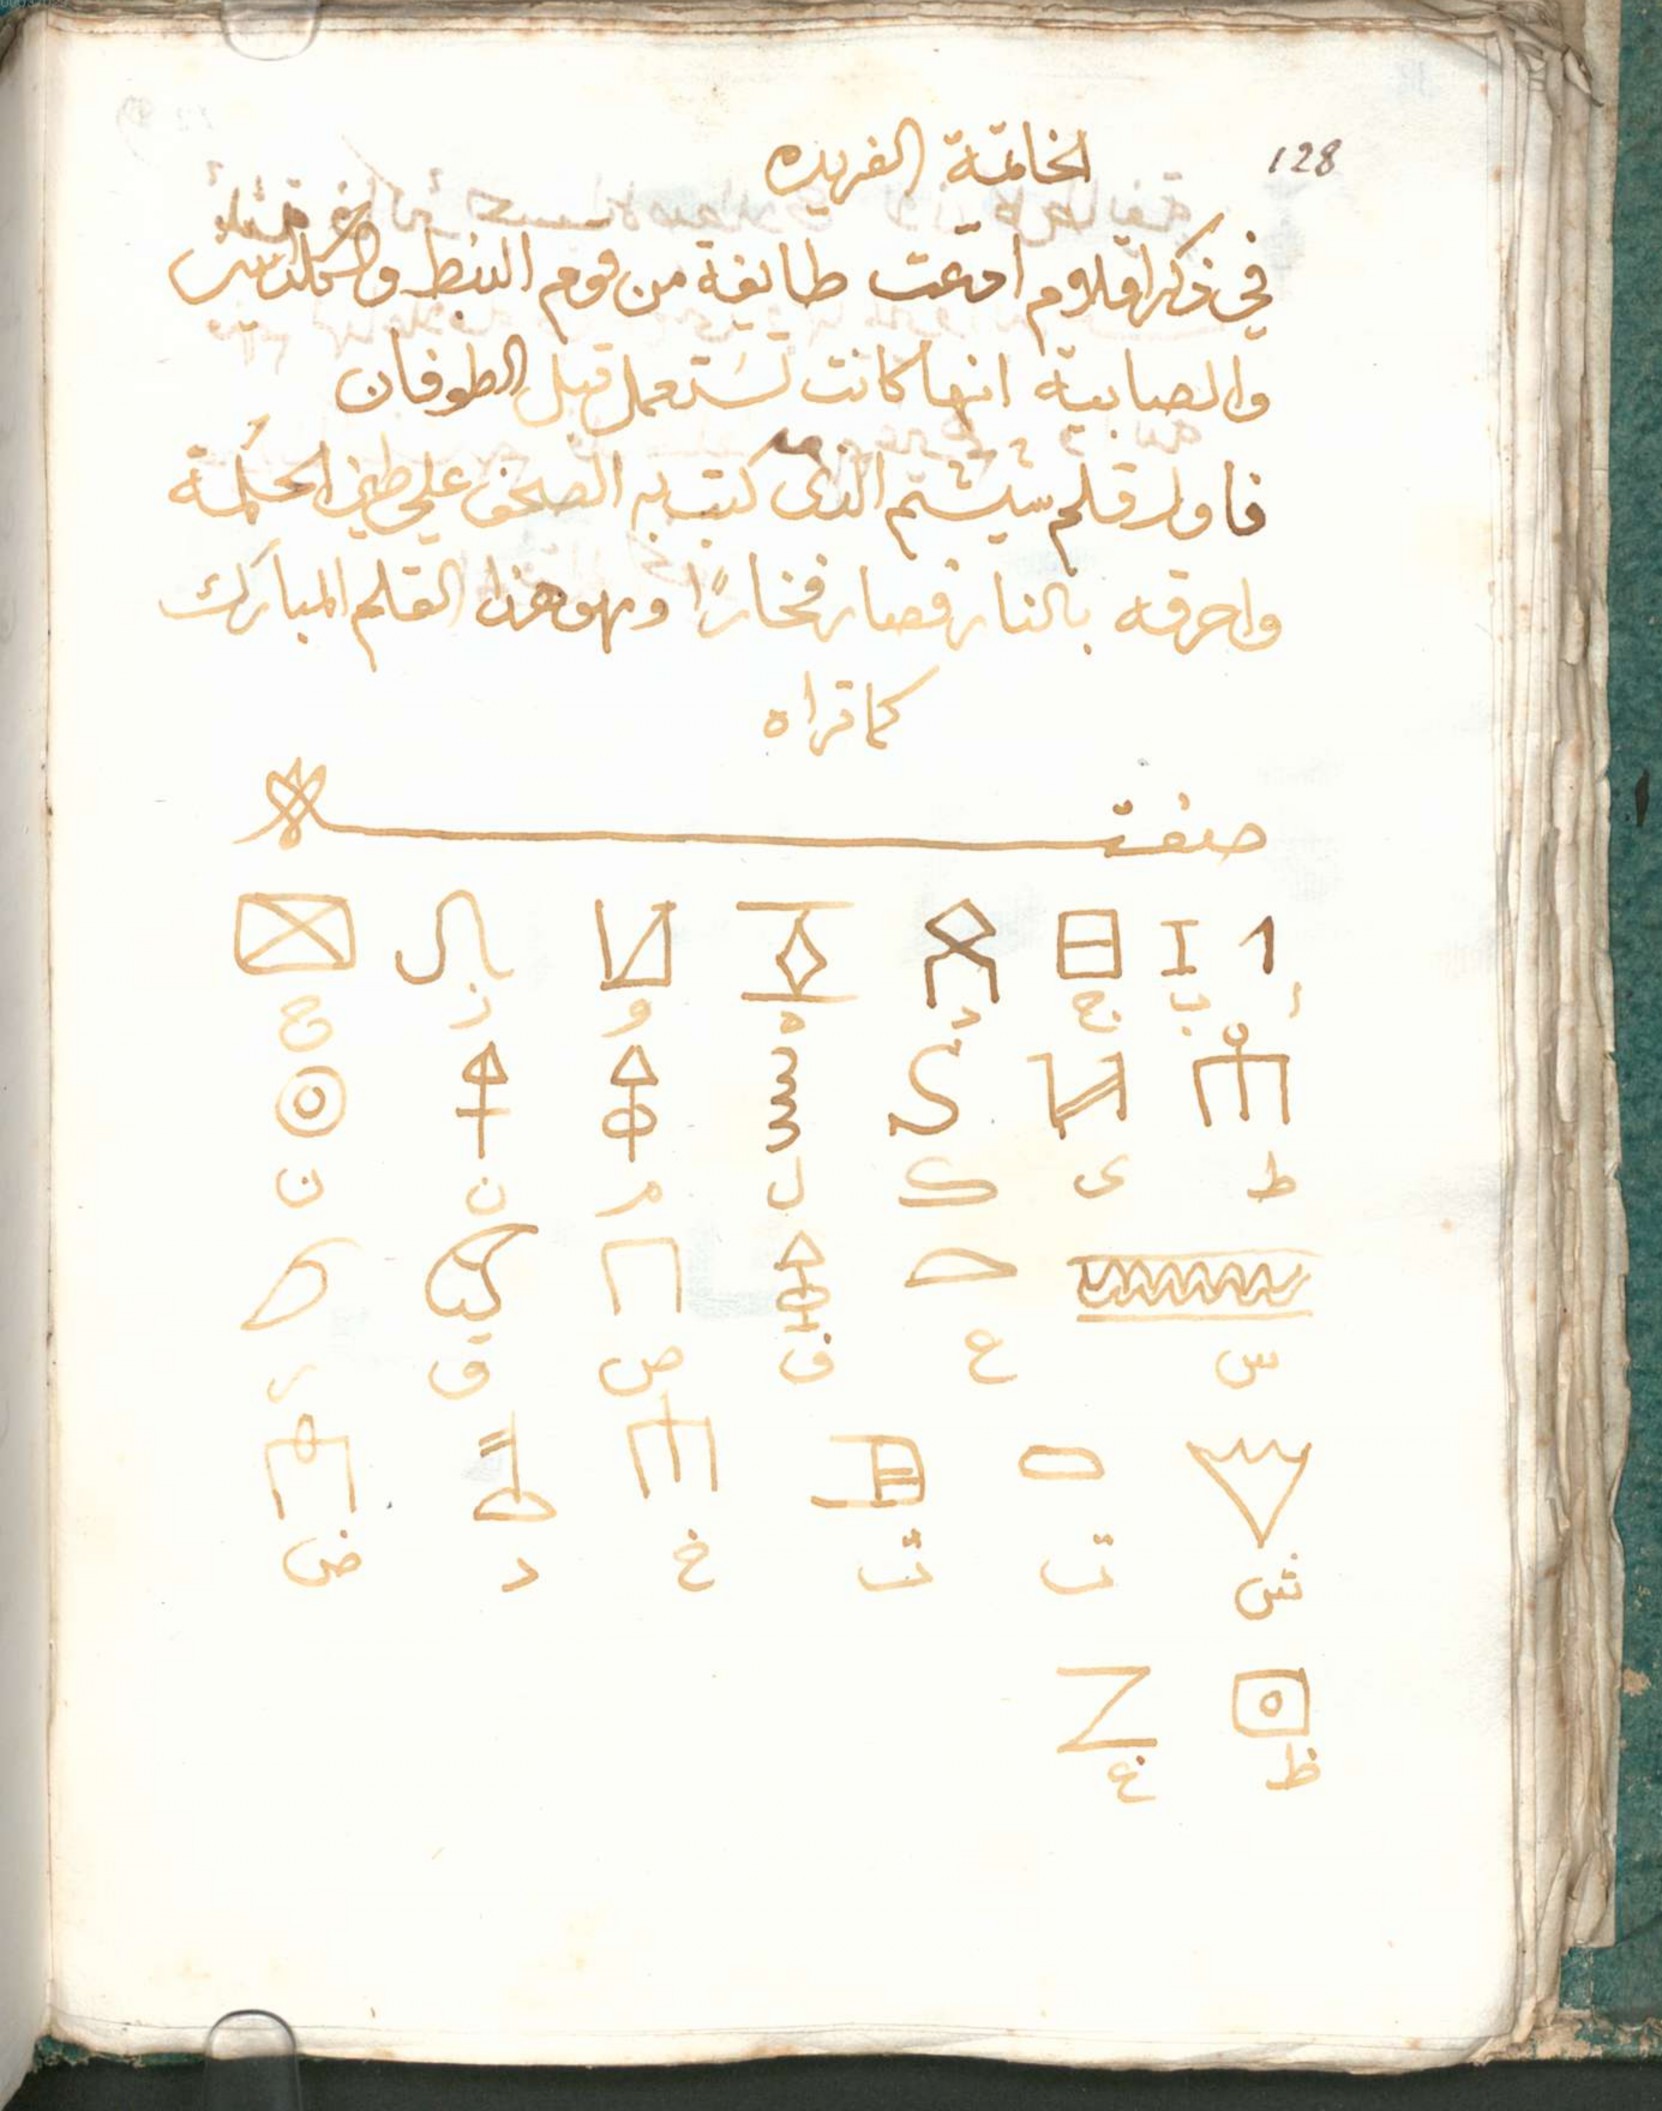 128
الخاتمة الفريده
في ذكر اقلام ادعت طايفة من قوم النبط والكلدانيين
والصابية انها كانت تستعمل قبل الطوفان
فاول قلم شيشم الذى كتب به الصحف على طين الحكمة
واحرقه بالنار فصار فخارًا وهو هذا القلم المبارك
كما تراه
صفة
أ ب ج د ه و ز ح
ط ى ك ل م ن ن
س ع ف ص ق ر
ش ت ث خ د ض
ظ غ